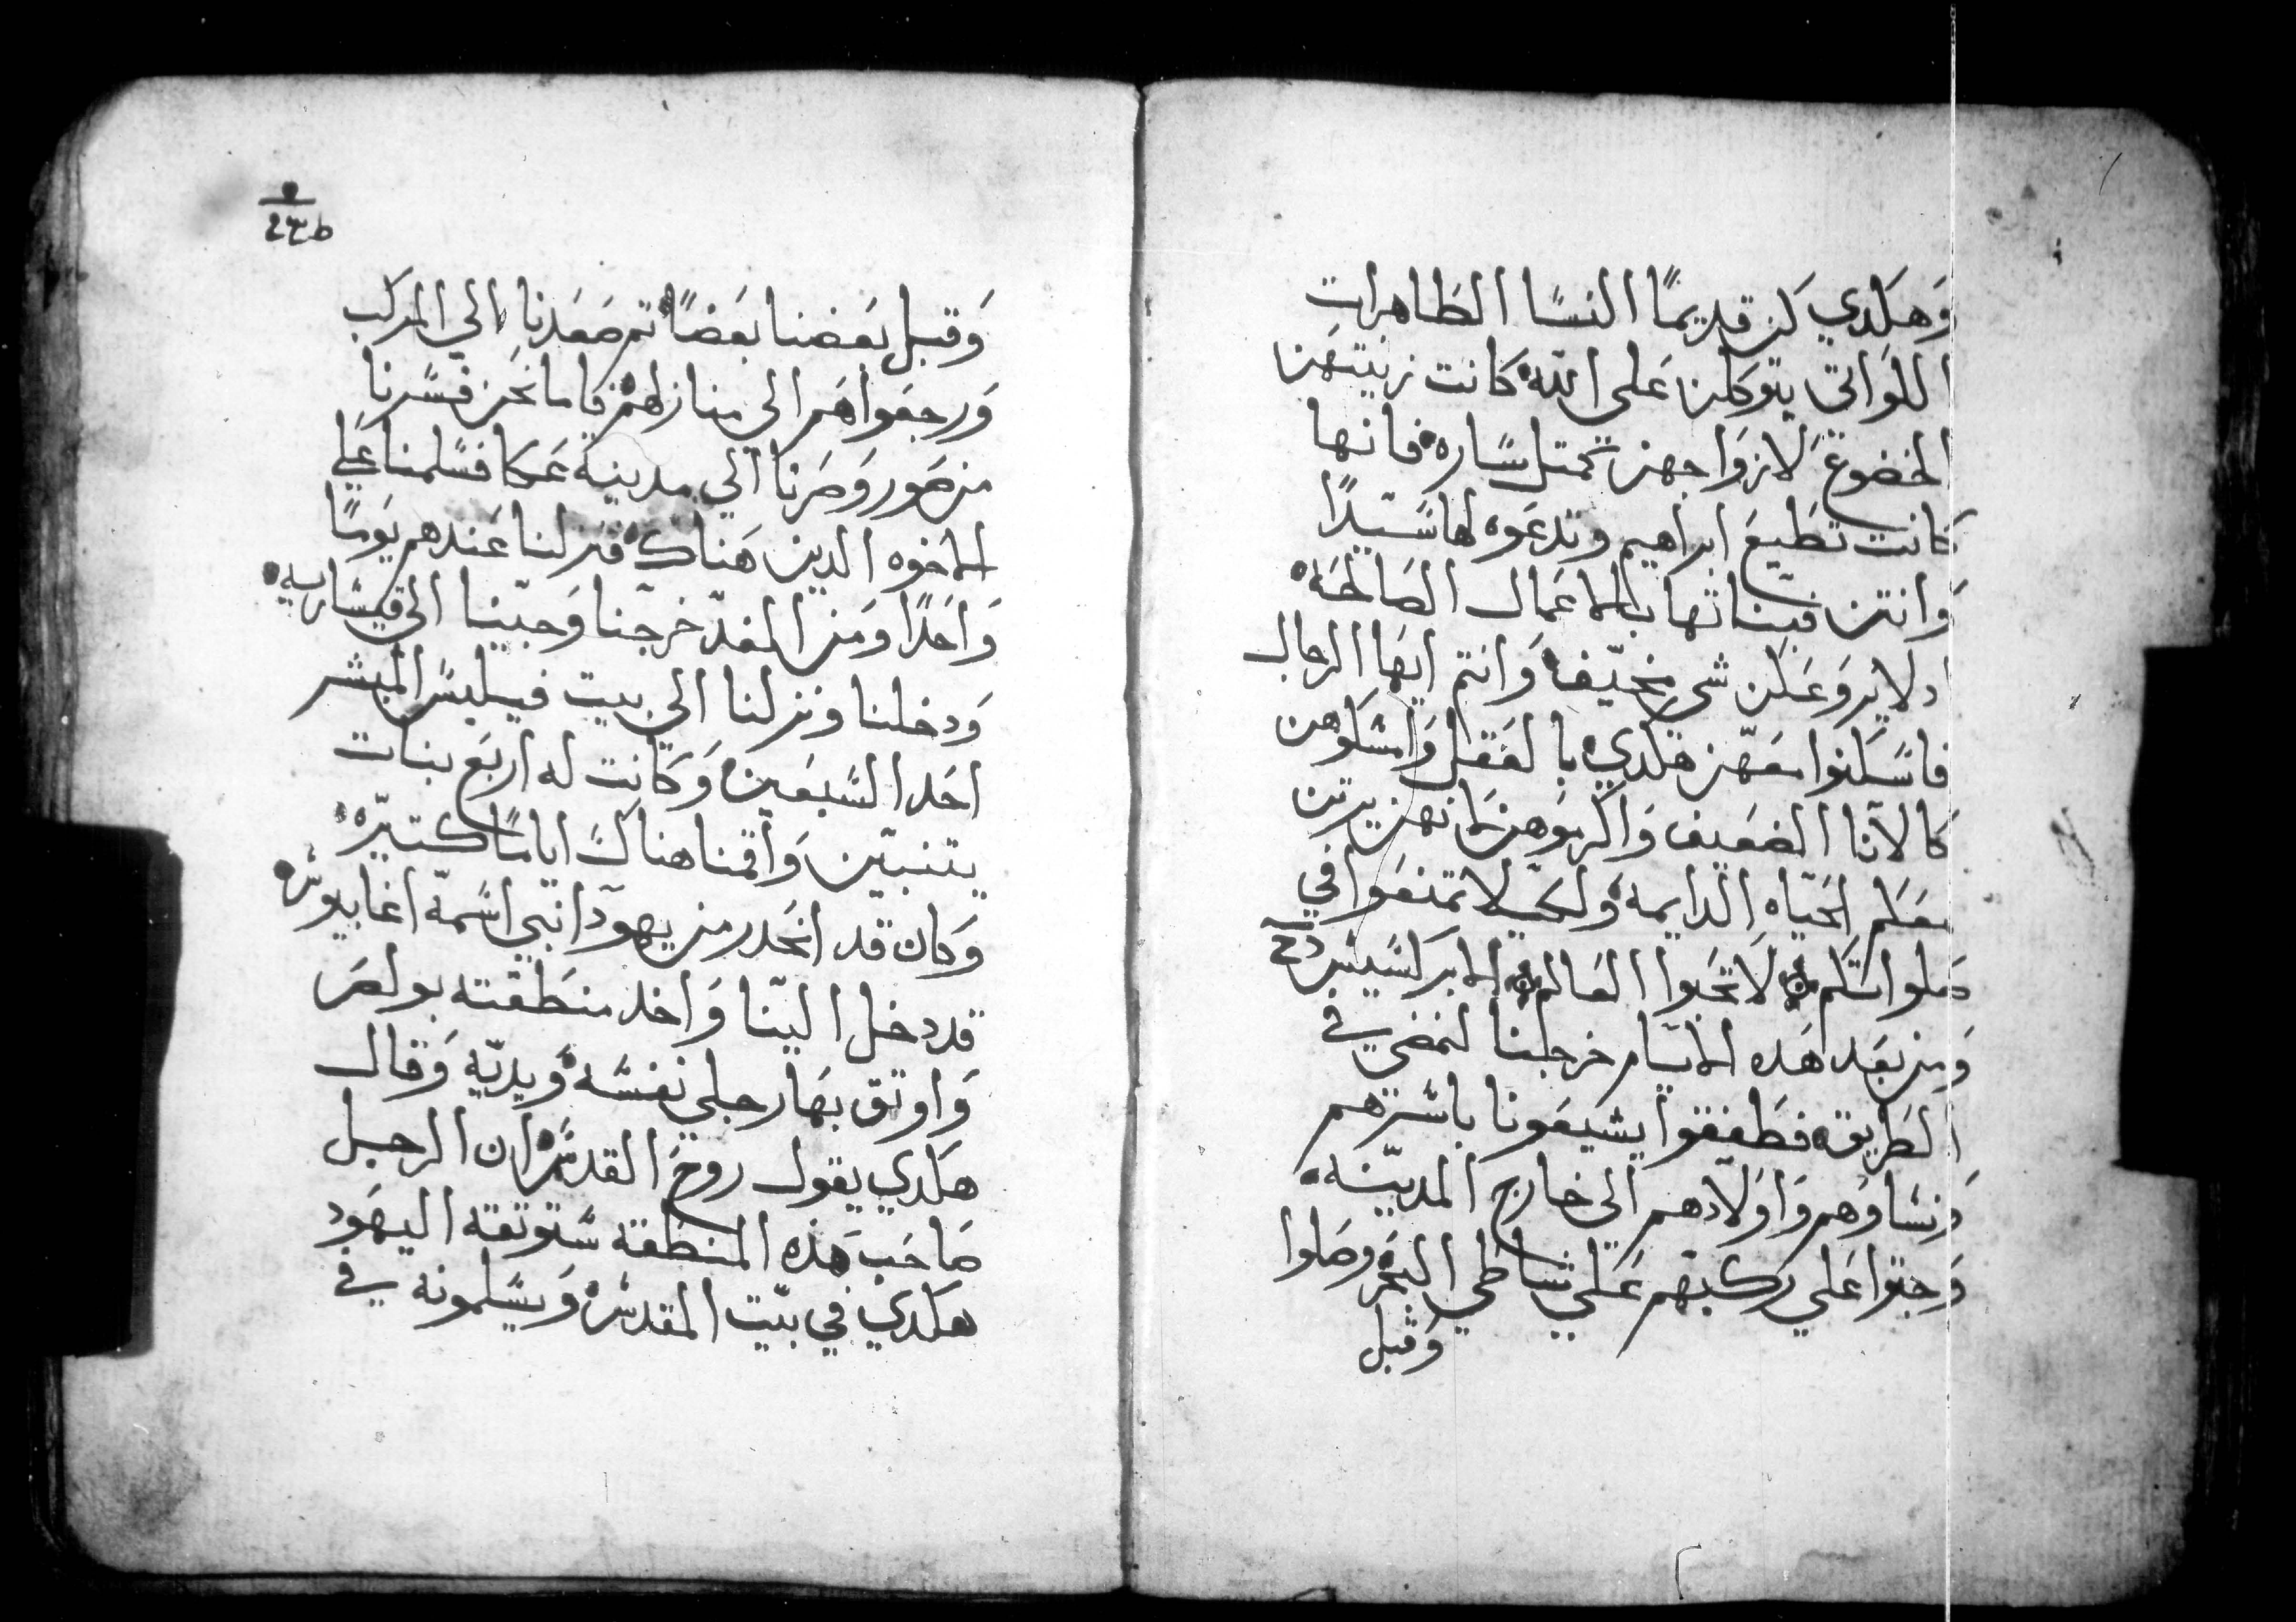 وَهكَدي كن قديمًا النسَا الطَاهرات
اللواتي يتوكلن عَلى الله كانت زينتهَن
الخضوعَ لازوَاجهن كمتل سَاره فانها
كانت تطَيعَ ابراهيم وتدعَوه لها سَيدًا
وَانتن فبناتها بالاعمَال الصَالحَه
ادلا يروعَكن شي مخيّف وَانتم ايهَا الرجال
فاسَكنوا معَهن هكدي بالعَقل وَامسَكوهن
كالانا الضعَيف وَاكرموهن لانهن يرتن
معَكم الحَياه الدايمه وَلكي لا تمتنعَوا في
صَلواتكم لا تحَبوا العَالم الابركسَيسَ
وَمن بعَد هَده الايام خرجنا لنمضي في
الطَريق فطَفقوا يشيعَونا باسَرهم
وَنسَاوَهم وَاوَلادهم الي خارج المدينه
وَجتوا عَلي ركبهم عَلي شاطي البحَر وصَلوا
وَقبل
وَقبل بعَضنا بعَضًا تم صَعَدنا الي المركب
وَرجعَوا هَم الى منازلهم فاما نحَن فسَرنا
من صَور وَصَرنا الي مدينة عَكا فسَلمنا عَلي
الاخوه الدين هَناك فنزلنا عَندهم يوَمًا
وَاحَدًا وَمن الغد خرجنا وَجينا الي قيسَاريه
وَدخلنا ونزلنا الي بيت فيلبسَ المبشر
احَد السَبعَين وَكانت له اربعَ بنات
يتنبين وَاقمنا هناك ايامًا كتيره
وَكان قد انحَدر من يهودا نبي اسَمه اغابوسَ
قد دخل الينا وَاخد منطَقته بولصَ
وَاوتق بهَا رجلي نفسَه وَيديه وَقال
هكدي يقول روحَ القدسَ ان الرجل
صَاحَب هَذه المنطَقه سَتوتقه اليهَود
هكدي في بيت المقدسَ وَيسَلمونه في